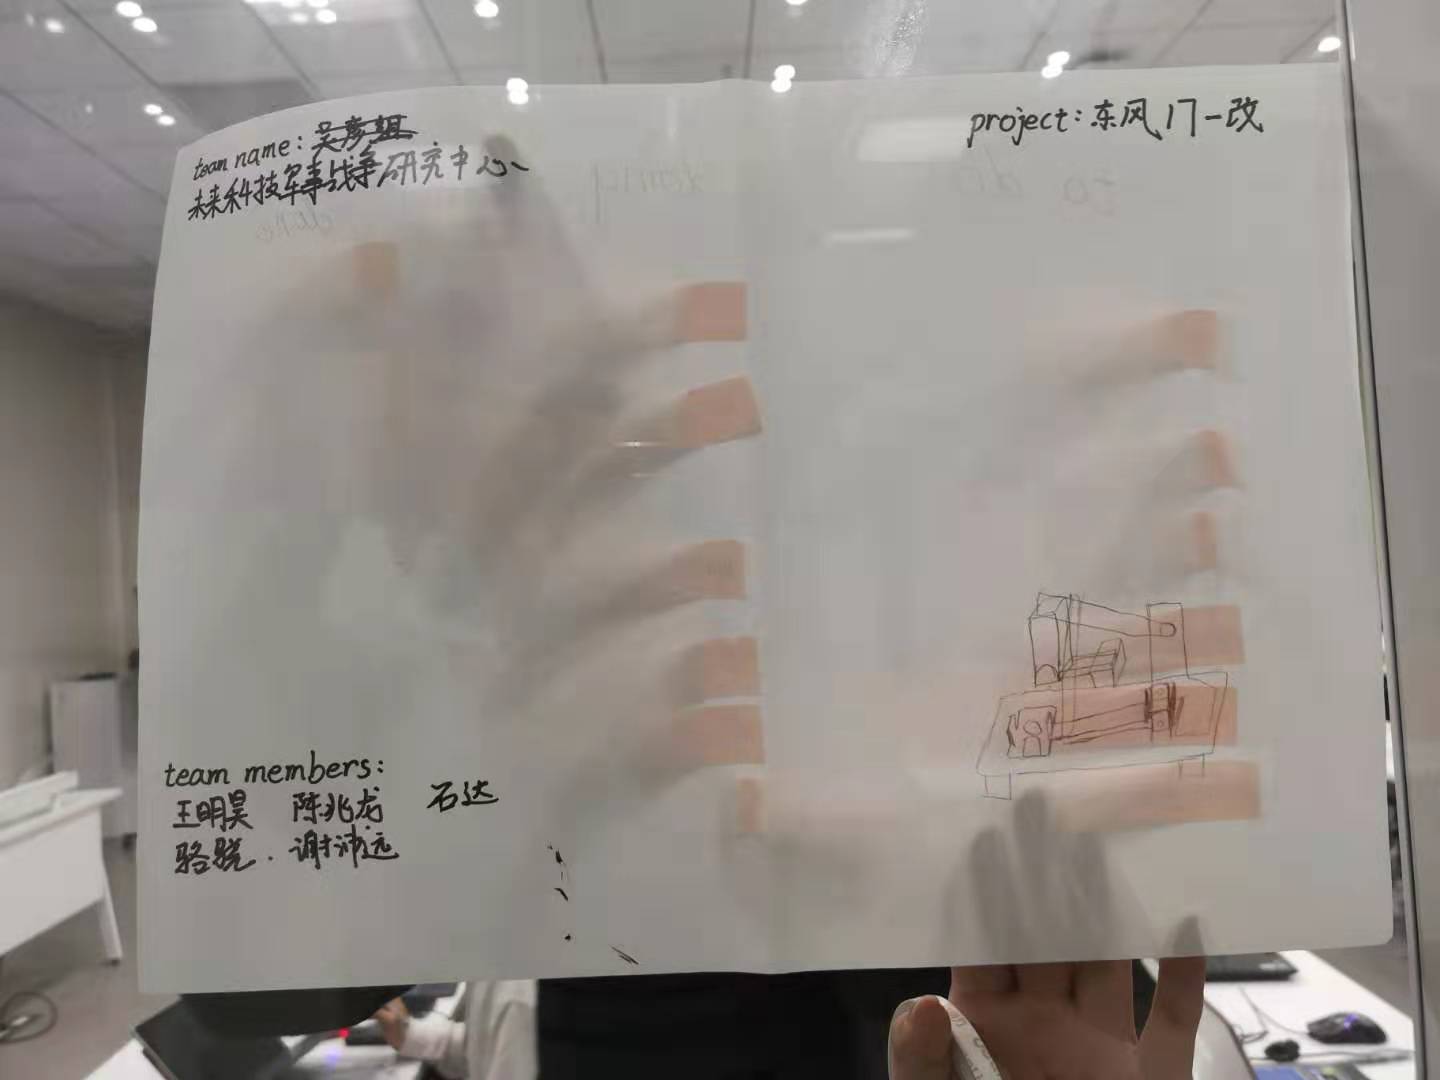 team name: 吴彦祖
未来科技军事战争研究中心
project: 东风17-改
to do
doing
team members:
王明昊 陈兆龙 石达
骆骁. 谢沛远